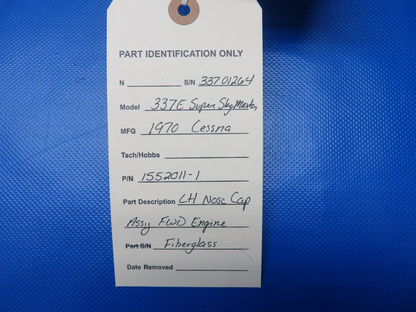 PART IDENTIFICATION ONLY
N S/N 33701264
Model 337E Super SkyMaster
MFG 1970 Cessna
Tach/Hobbs
P/N 1552011-1
Part Description LH Nose Cap
Assy FWD Engine
Part S/N Fiberglass
Date Removed